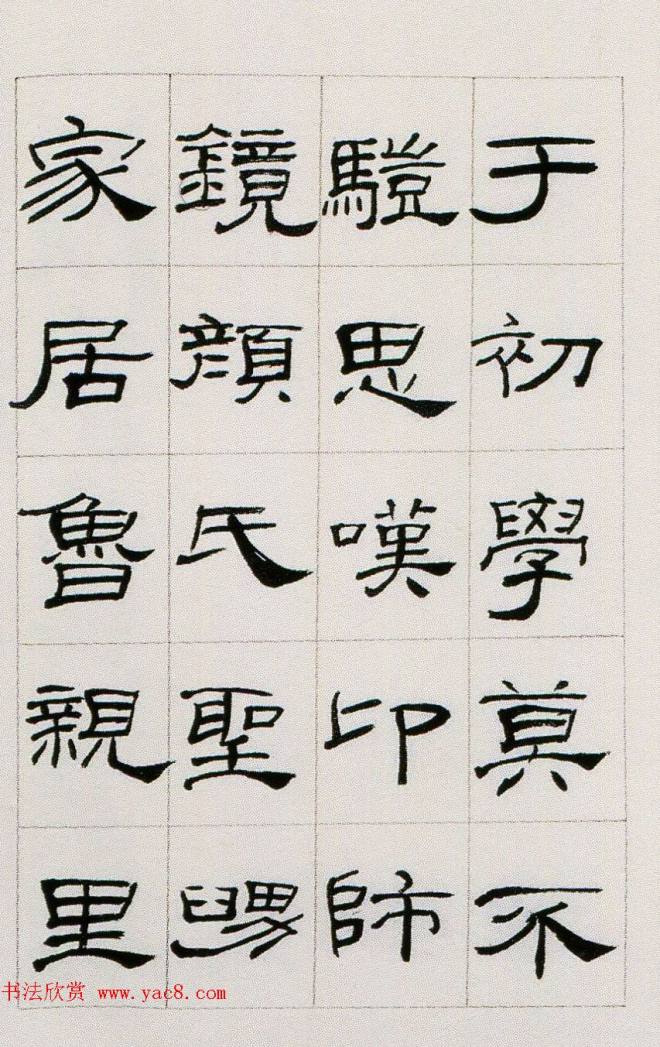 于初學莫不
思嘆卬師
鏡顏氏聖舅
家居魯親里
书法欣赏 www.yac8.com